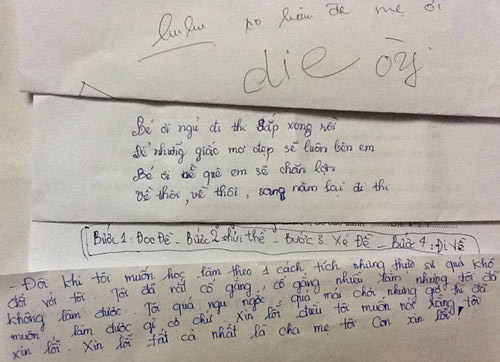 huhu ko làm đc mẹ ơi
die òy
Bé ơi ngủ đi thi sắp xong rồi
Để những giấc mơ đẹp sẽ luôn bên em
Bé ơi về quê em sẽ chăn lợn
Về thôi, về thôi, sang năm lại đi thi
Bước 1: Đọc Đề - Bước 2 nhìn thề - Bước 3: Xé Đề - Bước 4: Đi Về
- Đôi khi tôi muốn học, làm theo 1 cách, tích những thứ sự quá khó
đối với tôi. Tôi đã rất cố gắng, cố gắng nhiều lắm nhưng tôi đã
không làm được. Tôi quá ngu ngốc, quá mải chơi nhưng giờ thì đã
muộn, làm được gì cơ chứ. Xin lỗi, điều tôi muốn nói rằng tôi
xin lỗi. Xin lỗi tất cả nhất là cha mẹ tôi. Con xin lỗi,